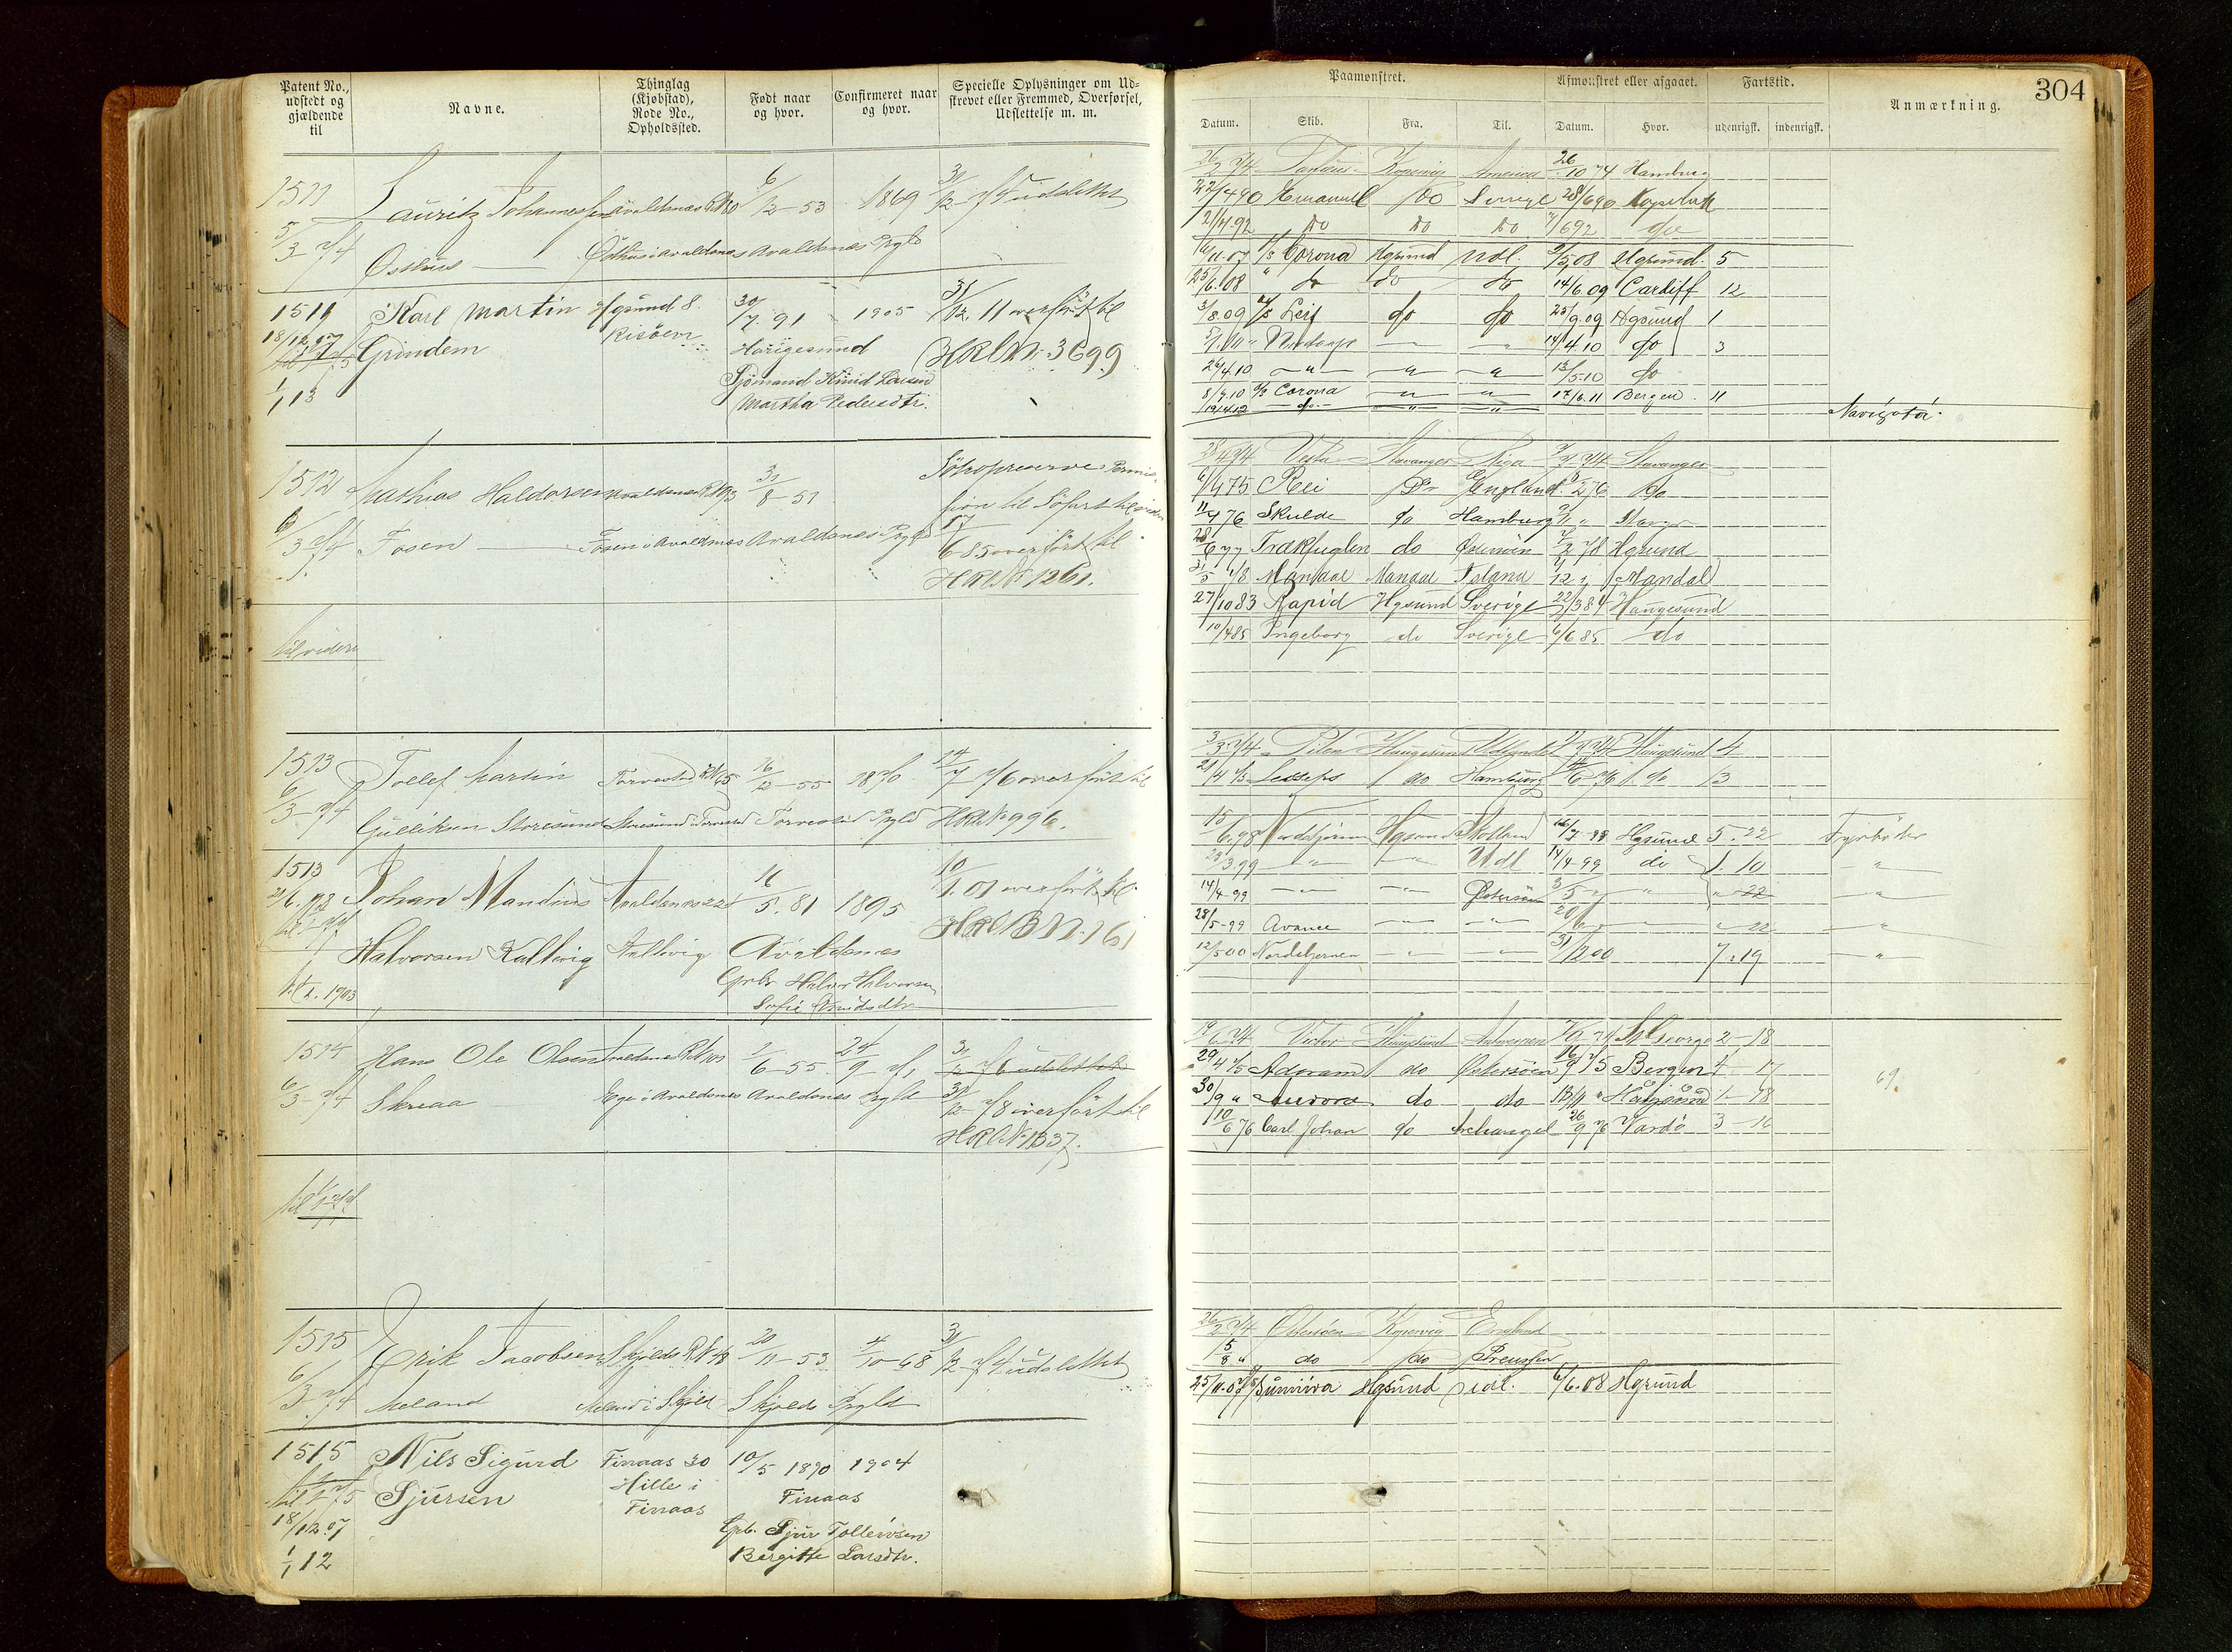 Patent No., udstedt og gjældende til
Navne.
Thinglag (Kjøbstad), Rode No., Opholdssted.
Født naar og hvor.
Confirmeret naar og hvor.
Specielle Oplysninger om Udskrevet eller Fremmed, Overførsel, Udslettelse m. m.
1511 Lauritz Johannessen Avaldsnes R N 80 6/12-53 1869 31/12 74 udslettet
5/3-74 Østhus Østhus i Avaldsnes Avaldsnes Prgld
1511 Karl Martin Hgsund 8. 30/7. 91 1905 31/12 11 overført til
18/12.07 Grindem Risøen Haugesund HRl N. 3699
Sjömand Knud Larsen
1/1 13 Martha Pedersdtr.
1512 Mathias Haldorsen Avaldsnes R N 93 31/8-51 Söthopreserve Permis-
6/3 74 Fosen Fosen i Avaldsnes Avaldsnes Prgld sion til Söfart til videre
17/6 85 overført til
HRl N. 1261.
til videre
1513 Tollef Martin Torvestad R N 65 16/12-55 1870 14/7 76 overført til
6/3-74 Gulliksen Storesund Storesund i Torvestad Torvestad Prgld HRl N. 996.
1513 Johan Mandius Avaldsnes 22 16/5.81 1895 10/1.01 overført til
21/6.98 HRl B N. 161
Halvorsen Kallevig Kallevig Avaldsnes
Gbr. Halvor Halvorsen
1/1. 1903 Sofie Knudsdtr
1514 Hans Ole Olsen Avaldsnes R N 103 2/6-55 24/9 71 31/12 76 udslettet
6/3-74 Skreaa Ege i Avaldsnes Avaldsnes Prgld 31/12-78 overført til
HRl N. 1337.
1515 Erik Jacobsen Skjolds R N 48 20/11-53 4/10-68 31/12-74 udslettet
6/3.74 Meland Meland i Skjold Skjolds Prgld
1515 Nils Sigurd Finaas 30 10/5 1890 1904
Sjursen Hille i Finaas Finaas
18/12.07 Gbr. Sjur Tollevsen
1/1 12 Bergitte Larsdtr.
304
Paamønstret.
Afmønstret eller afgaaet.
Fartstid.
Anmærkning.
Datum. Skib. Fra. Til. Datum. Hvor. udenrigsk. indenrigsk.
26/2 74 Kopervig America 26/10 74 Hamburg
22/4 90 Emanuel Do 28/6 90
21/4.92 Do Do Do 7/6 92 do
16/11.07 Corona Hgsund Udl. 9/5.08 Hgsund. 5
23/6.08 " do do do 14/6 09 Cardiff 12
3/8.09 Leif do do 23/9.09 Hgsund 1
14/4.10 do 3
26/4.10 — " — — " — — " — 13/5.10 do
8/7.10 Corona — " — — " — 17/6.11 Bergen. 11
19/4 12 — do — — " — — " —
28/4 74 Vesta Stavanger Riga 74 Stavanger
6/4 75 Rei Do England 2 76 Do
11/4 76 Skulde do Hamburg
28/6 77 Trækfuglen do Østersöen 78 Hgsund
21/5 78 Mandal Mandal Island 12 " Mandal
27/10 83 Rapid Hgsund Sverige 22/3 84 Haugesund
10/4 85 Ingeborg do Sverige 6/6 85 do
3/3 74 Haugesund Udlandet 74 Haugesund 4
21/4 75 Lesseps do Hamburg 76 do 13
15/6.98 Nordstjernen Hgsund Skotland 16/7-98 Hgsund 5. 22 Fyrbøter
23/3 99 — " — — " — Udl 14/4-99 do 1. 10 — " —
14/4-99 — " — — " — Østersöen 3/5 " " 22 — " —
28/5-99 Avance — " — — " — " 22 — " —
12/5 00 Nordstjernen — " — — " — 31/12 00 7.19 — " —
19/6 74 Victor Haugesund Antwerpen 74 St George 2-18
29/4 75 Adoram do Østersöen 16/9 75 Bergen 4-17
30/9 " Aurora do do Haugesund 1-18
10/6 76 Carl Johan do Archangel 26/9 76 Vardö 3-16
26/2 74 Østersöen Kopervig England
15/8 " do do Preussen
25/11.07 Sunniva Hgsund Udl. 6/6.08 Hgsund